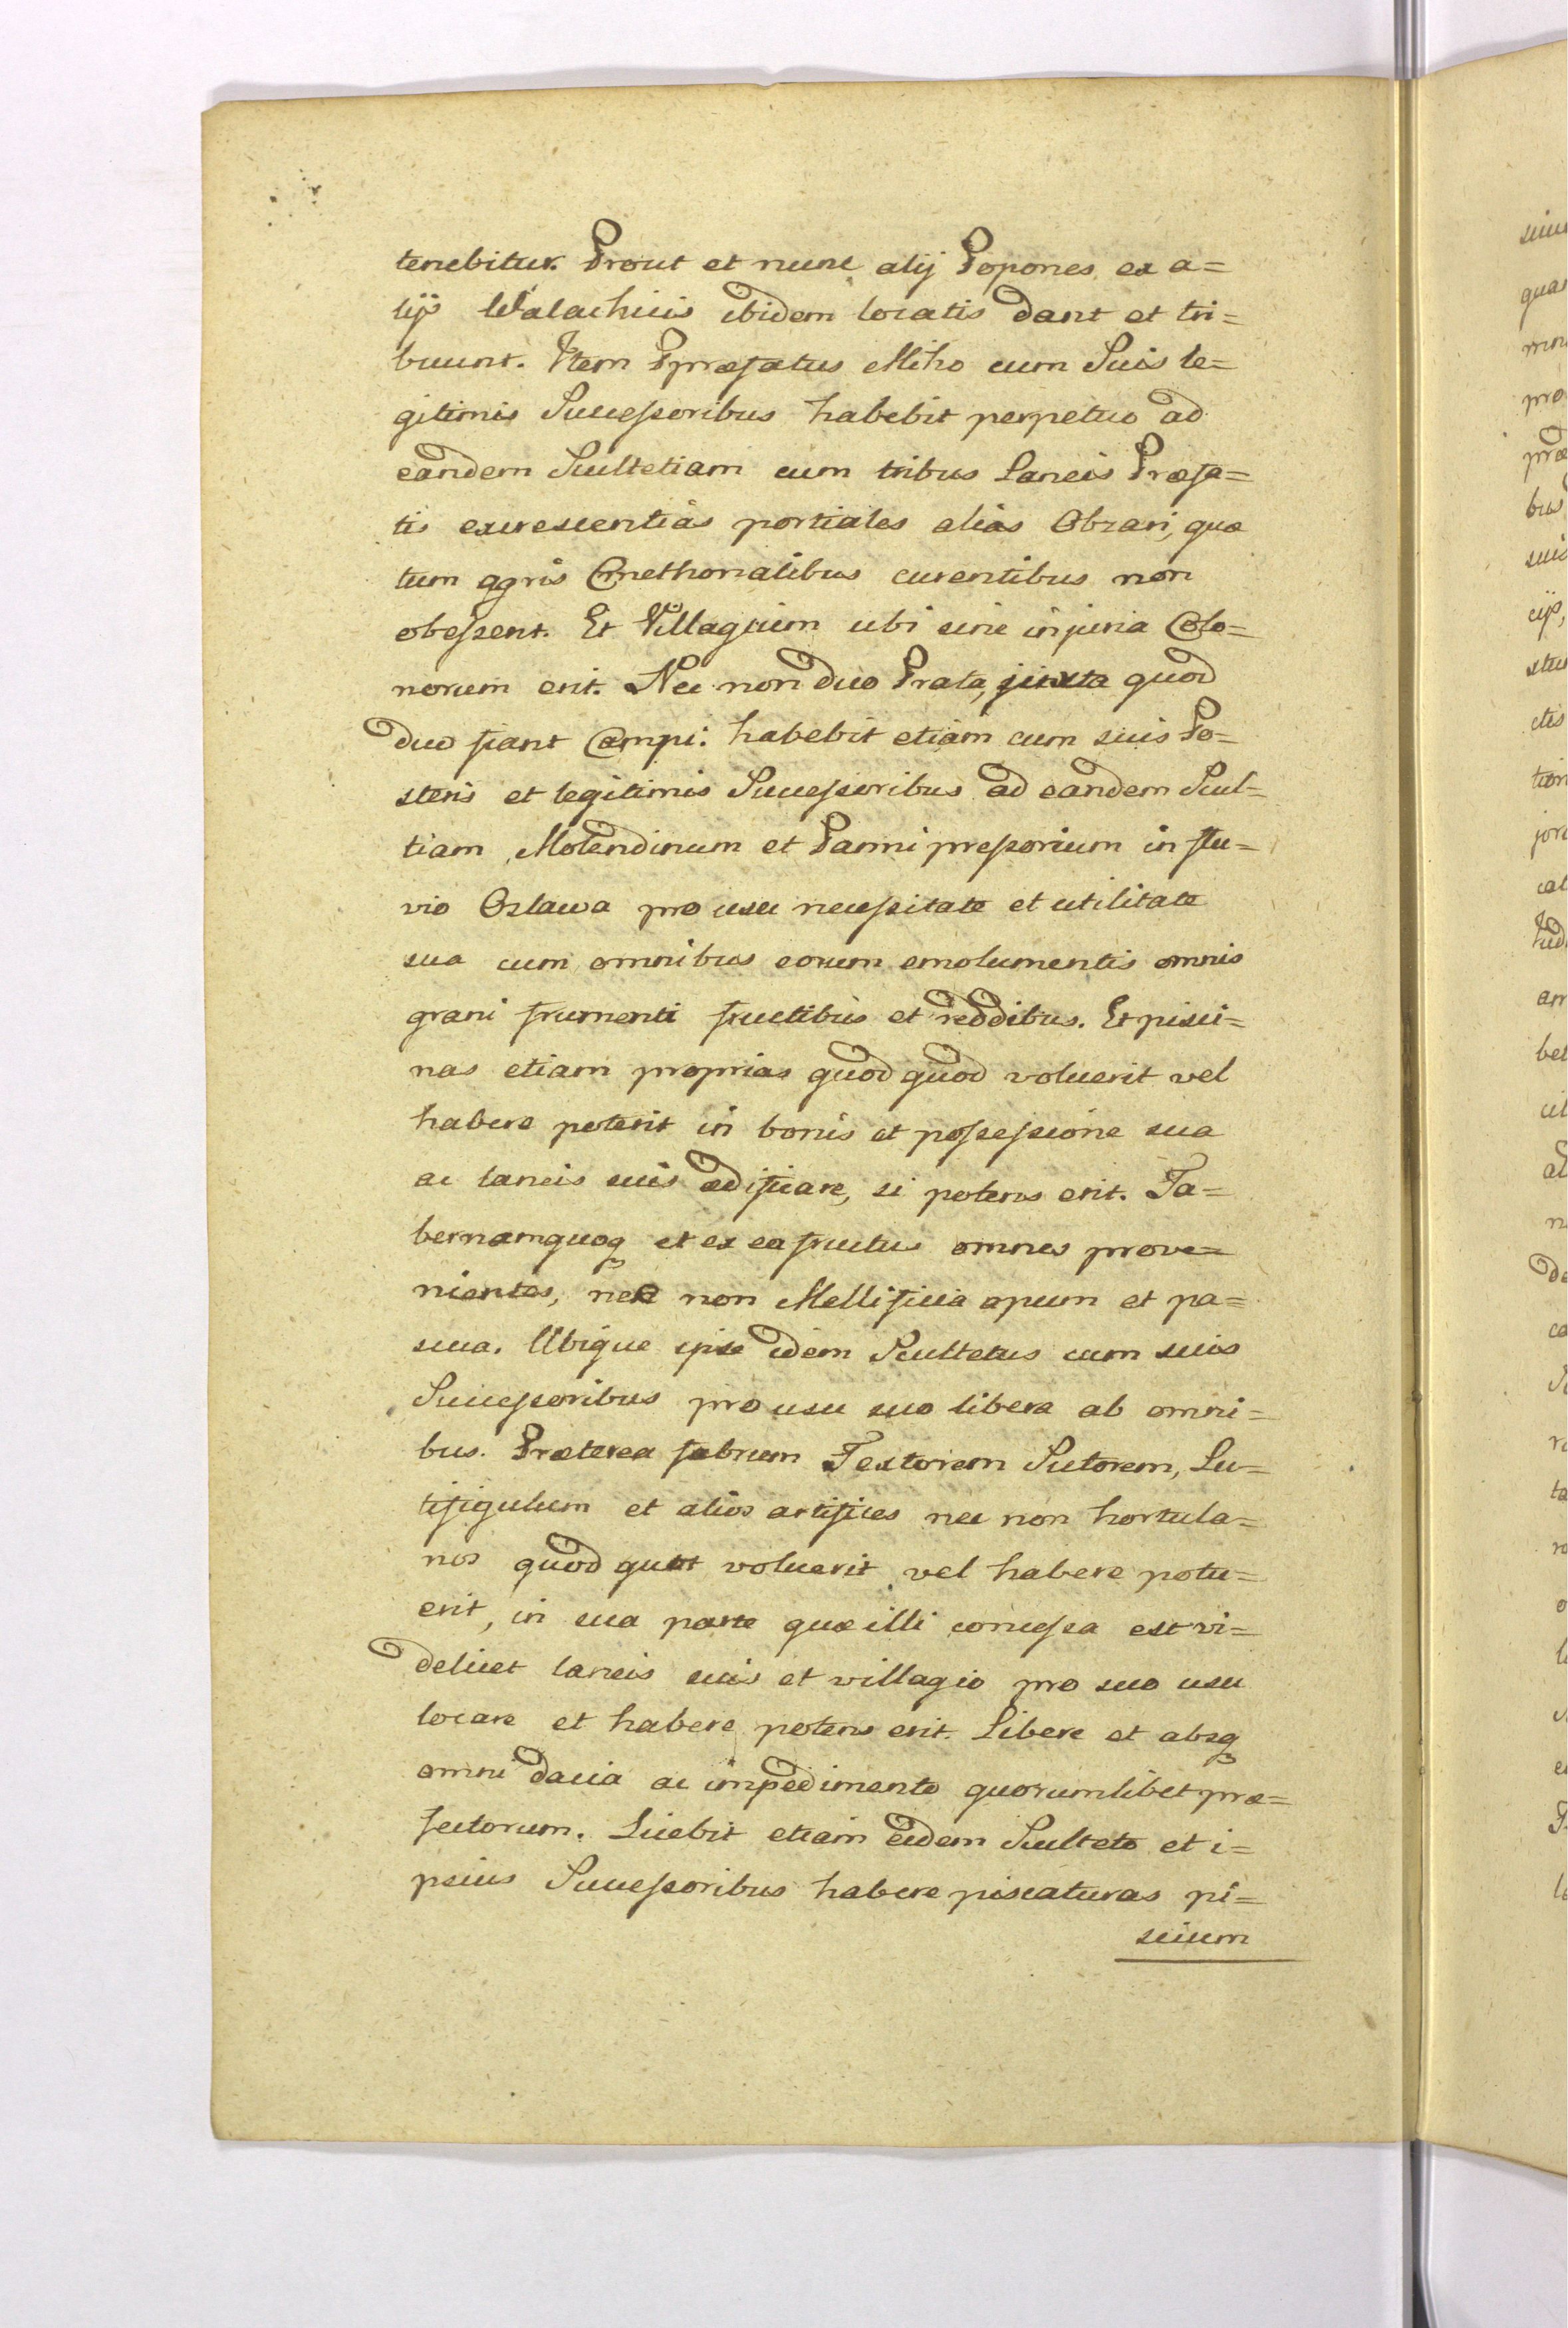 tenebitur. Prout et nunc alij Popones ex a=
lijs Walachicis ibidem locatis dant et tri=
buunt. Item Præfatus Miho cum Suis le=
gitimis Succeſsoribus habebit perpetuo ad
eandem Scultetiam cum tribus Laneis Præfa=
tis excrescentias portiales alias Obzari, quæ
tum agris Cmethonalibus curentibus non
obeſsent. Et Villagium ubi sine injuria Colo=
norum erit. Nec non duo Prata, juxta quod
duo fiant Campi. habebit etiam cum suis Po=
steris et legitimis Succeſsoribus ad eandem Scul=
tiam, Molendinum et Panni preſsorium in flu=
vio Oslawa pro usu neceſsitate et utilitate
sua cum omnibus eorum emolumentis omnis
grani frumenti fructibus et reddibus. Et pisci=
nas etiam proprias quod quod voluerit vel
habere poterit in bonis et poſseſsione sua
ac laneis suis ædificare, si potens erit. Ta=
bernamquoq et ex ea fructus omnes prove=
nientes, nec non Mellificia apum et pa=
scua. Ubique ipse idem Scultetus cum suis
Succeſsoribus pro usu suo libera ab omni=
bus. Præterea fabrum Textorem Sutorem, Lu=
tifigulum et alios artifices nec non hortula=
nos quod quot voluerit vel habere potu=
erit, in sua parte quæ illi conceſsa est vi=
delicet laneis suis et villagio pro suo usu
locare et habere potens erit. Libere et absq
omni dacia ac impedimento quorumlibet præ=
fectorum. Licebit etiam eidem Sculteto et i=
psius Succeſsoribus habere piscaturas pi=
scium